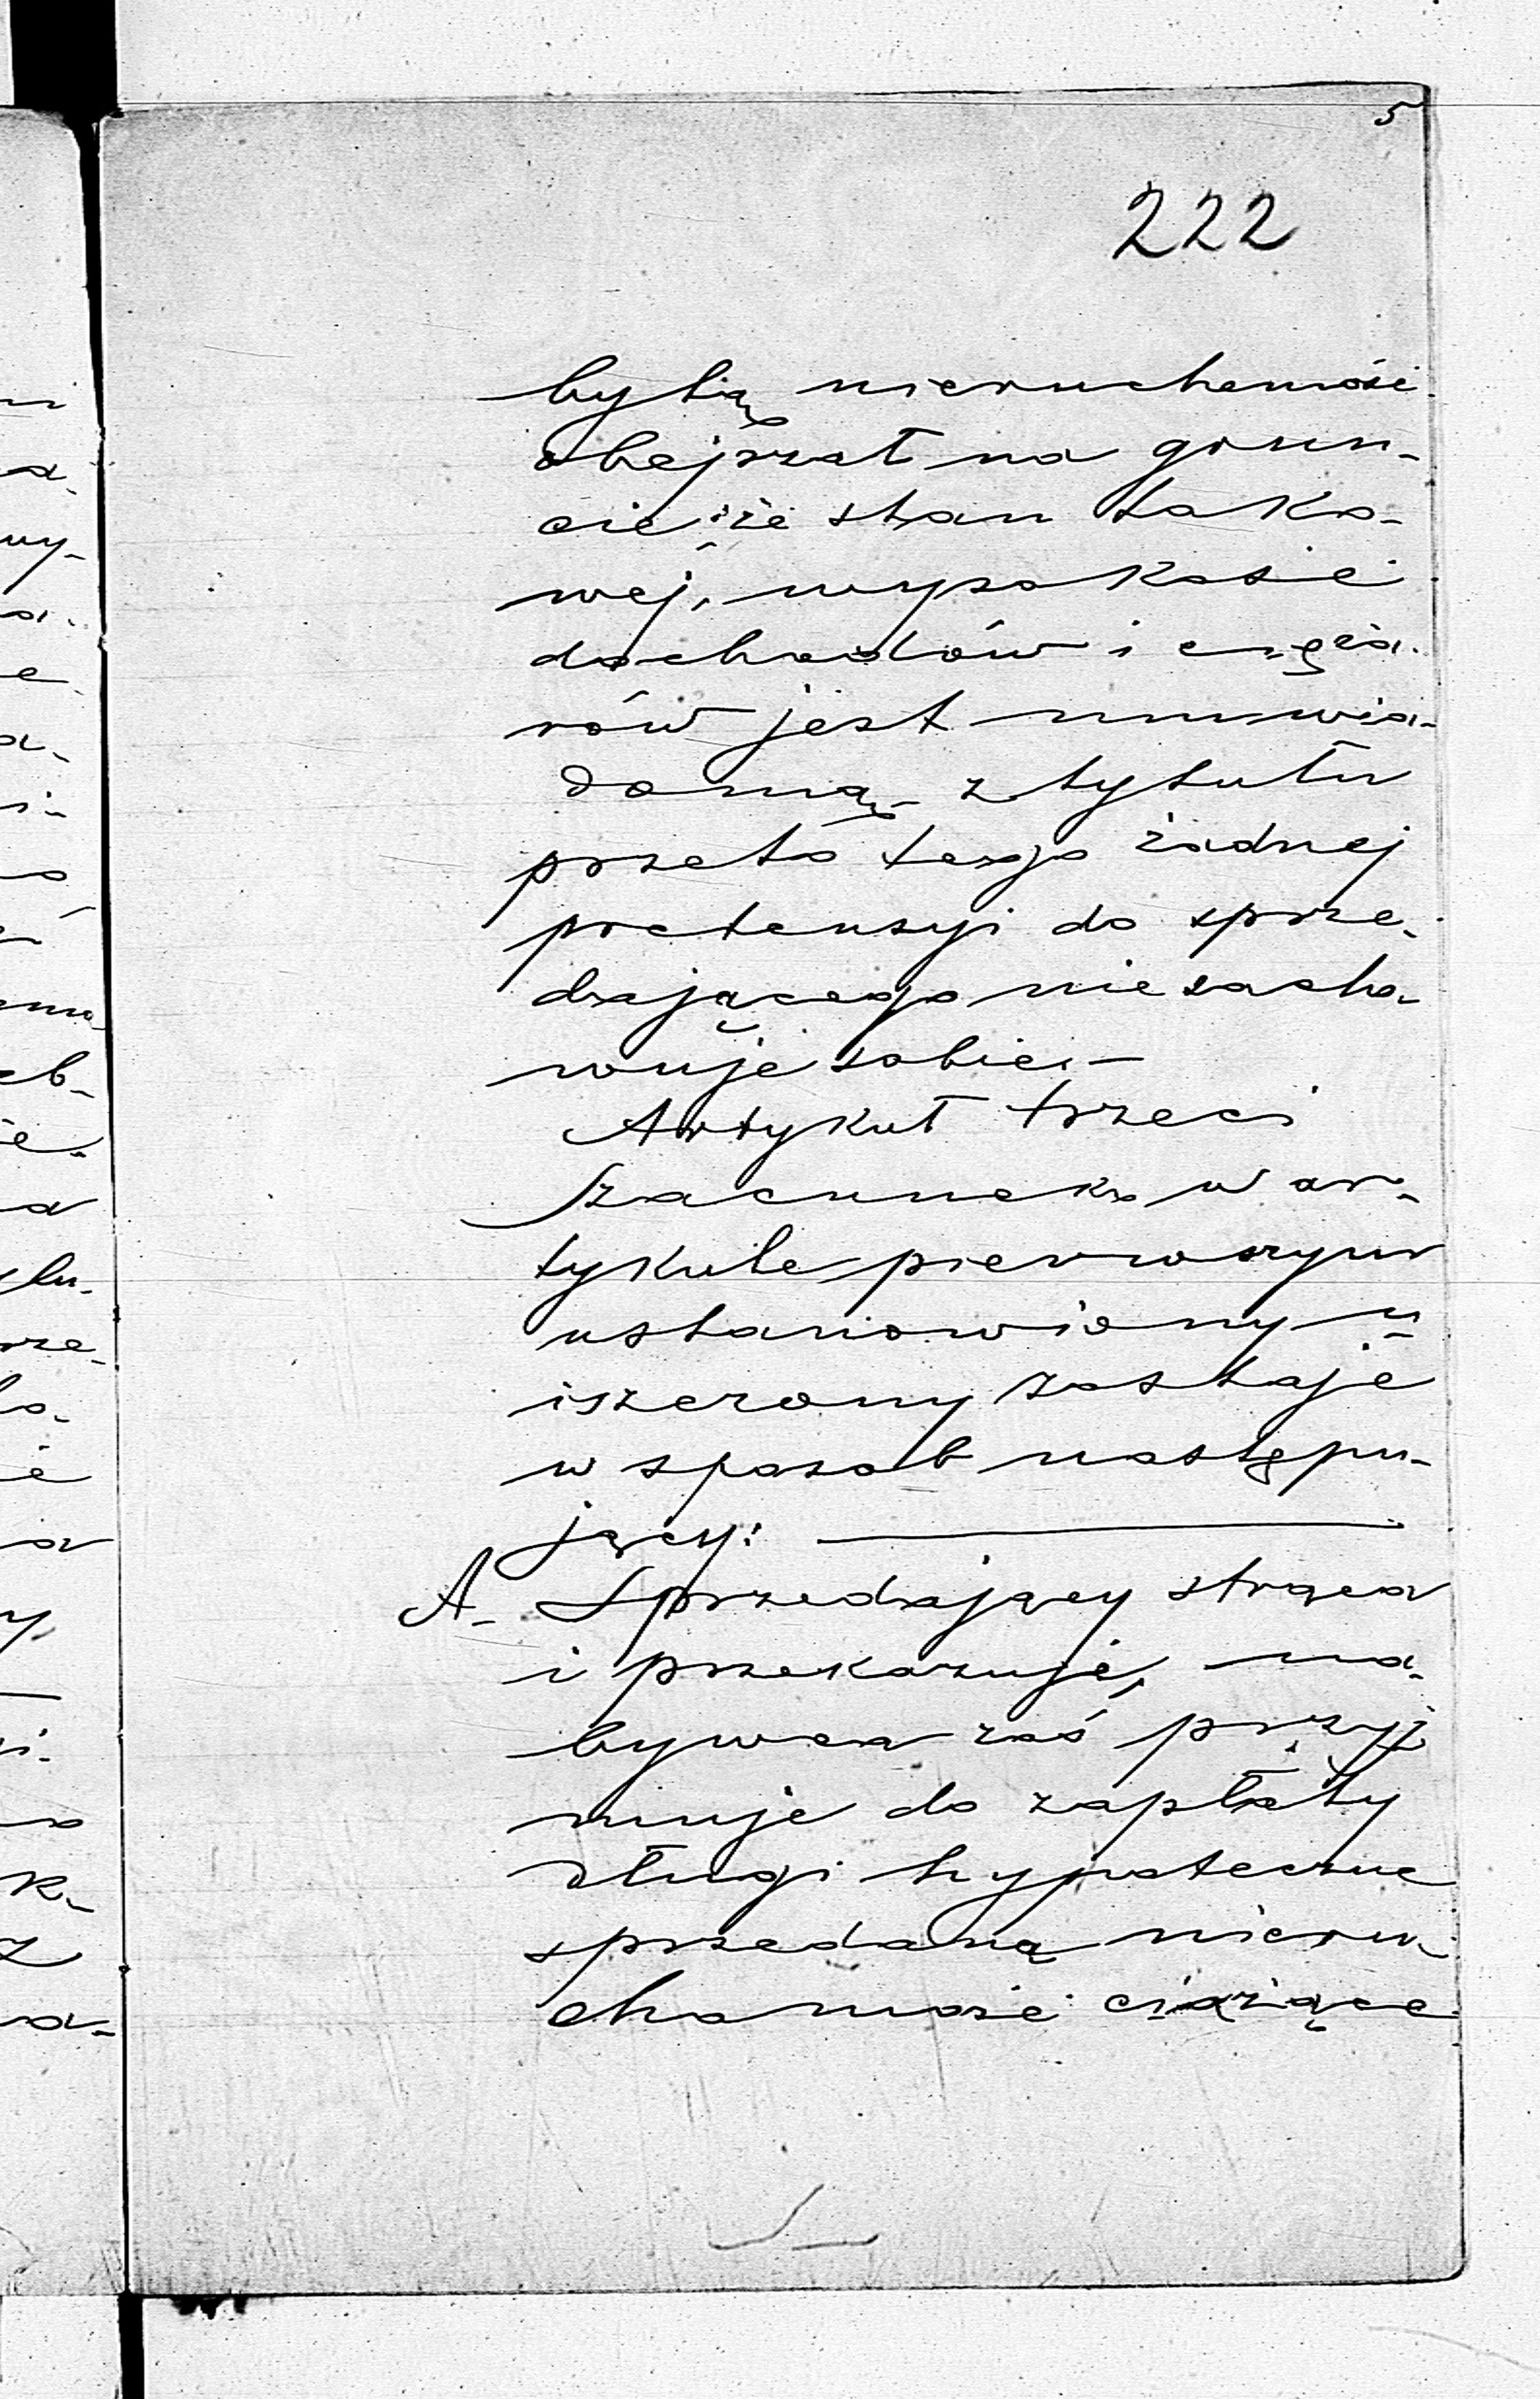 5
222
bytią nieruchomość
obejrzał na grun-
cie że stan tako-
wej, wysokość
dochodów i cięża-
rów jest mu wia-
domą z tytułu
przeto tego żadnej
pretensyi do sprze-
dającego nie zacho-
wuje sobie. —
Artykuł trzeci
Szacunek w ar-
tykule pierwszym
ustanowiony u-
iszczony zostaje
w sposob następu-
jący: —
A- Sprzedający strąca
i przekazuje, na-
bywca zaś przyj-
muje do zapłaty
długi hypoteczne
sprzedaną nieru-
chomość ciążące